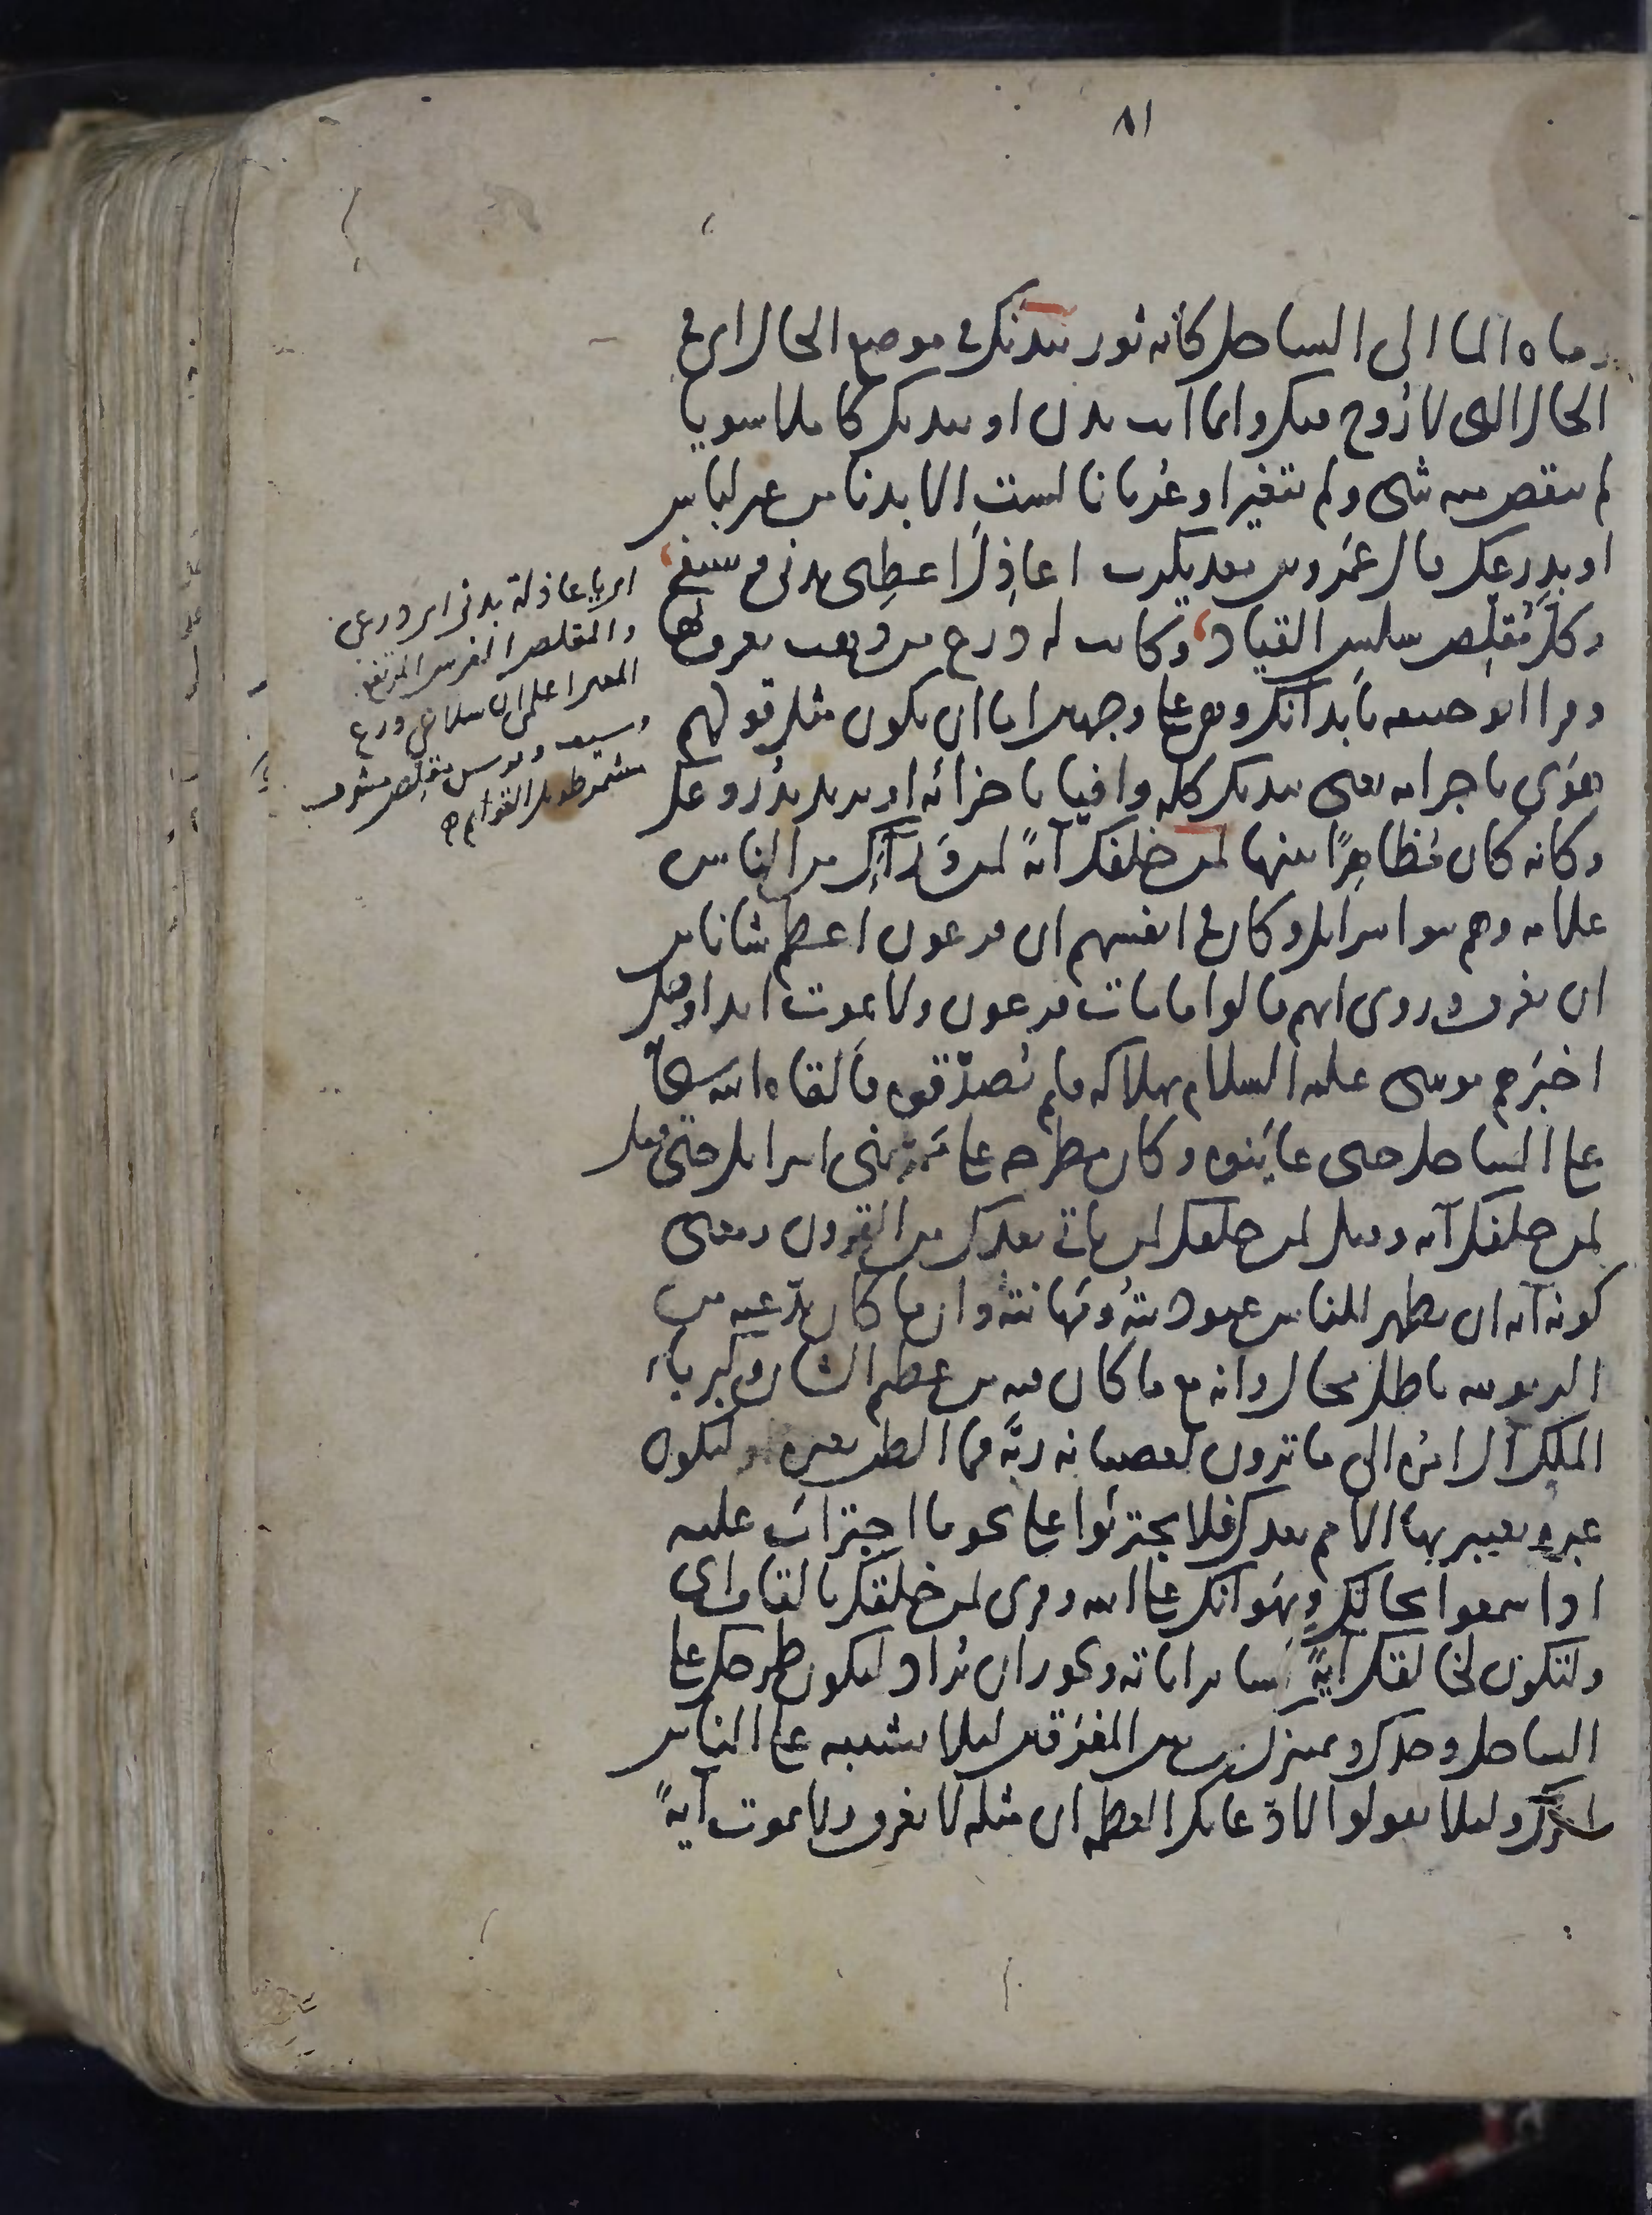 ٨١
رماه الماء الى الساحل كانه ثور ببدنك في موضع الحال اى فى
الحال التى لا روح فيك وانما انت بدن او ببدنك كاملا سويا
لم ينقص منه شى ولم يتغير او عريانا لست الا بدنا من غير لباس
او بدرعك قال عمرو بن معديكرب اعاذل اعطى بدنى وسيفى
وكل مقلص سلس القياد وكانت له درع من ذهب يعرف بها
وقرا ابو حنيفه بابدانك وهو على وجهين اما ان يكون مثل قولهم
هوى باجرامه يعنى ببدنك كله وافيا باجزائه او يريد بدروعك
وكانه كان مظاهرا بينها لمن خلفك آية لمن وراءك من الناس
علامه وهم بنوا اسرايل وكان فى انفسهم ان فرعون اعظم شانا من
ان يغرق وروى انهم قالوا ما مات فرعون ولا يموت ابدا وقيل
اخبرهم موسى عليه السلام بهلاكه فلم يصدقوه فالقاه الله
على الساحل حتى عاينوه وكان مطرحه على ممر بنى اسرايل حتى قيل
لمن خلفك آيه وقيل لمن خلفك لمن ياتى بعدك من القرون ومعنى
كونه آيه ان يظهر للناس عبوديته ومهانته وان ما كان يدعيه من
الربوبيه باطل محال وانه مع ما كان فيه من عظم الشان وكبرياء
الملك آل امره الى ما ترون لعصيانه ربه فما الظن بغيره او لتكون
عبره يعتبر بها الامم بعدك فلا يجترئوا على نحو ما اجترات عليه
اذا سمعوا بحالك وبهوانك على الله وقرى لمن خلقك بالقاف اى
ولتكون لخالقك آية كسائر اياته ويجوز ان يراد ليكون طرحك على
الساحل وحدك وتمييزك من بين المغرقين لئلا يشتبه على الناس
امرك ولئلا يقولوا لادعائك العظمه ان مثله لا يغرق ولا يموت آية
اى يا عاذلة بدنى اى درعى
والمقلص الفرس المرتفع
المعنى اعلمى ان سلاحى درع
وسيف وفرس مقلص مشرف
مشمر طويل القوائم